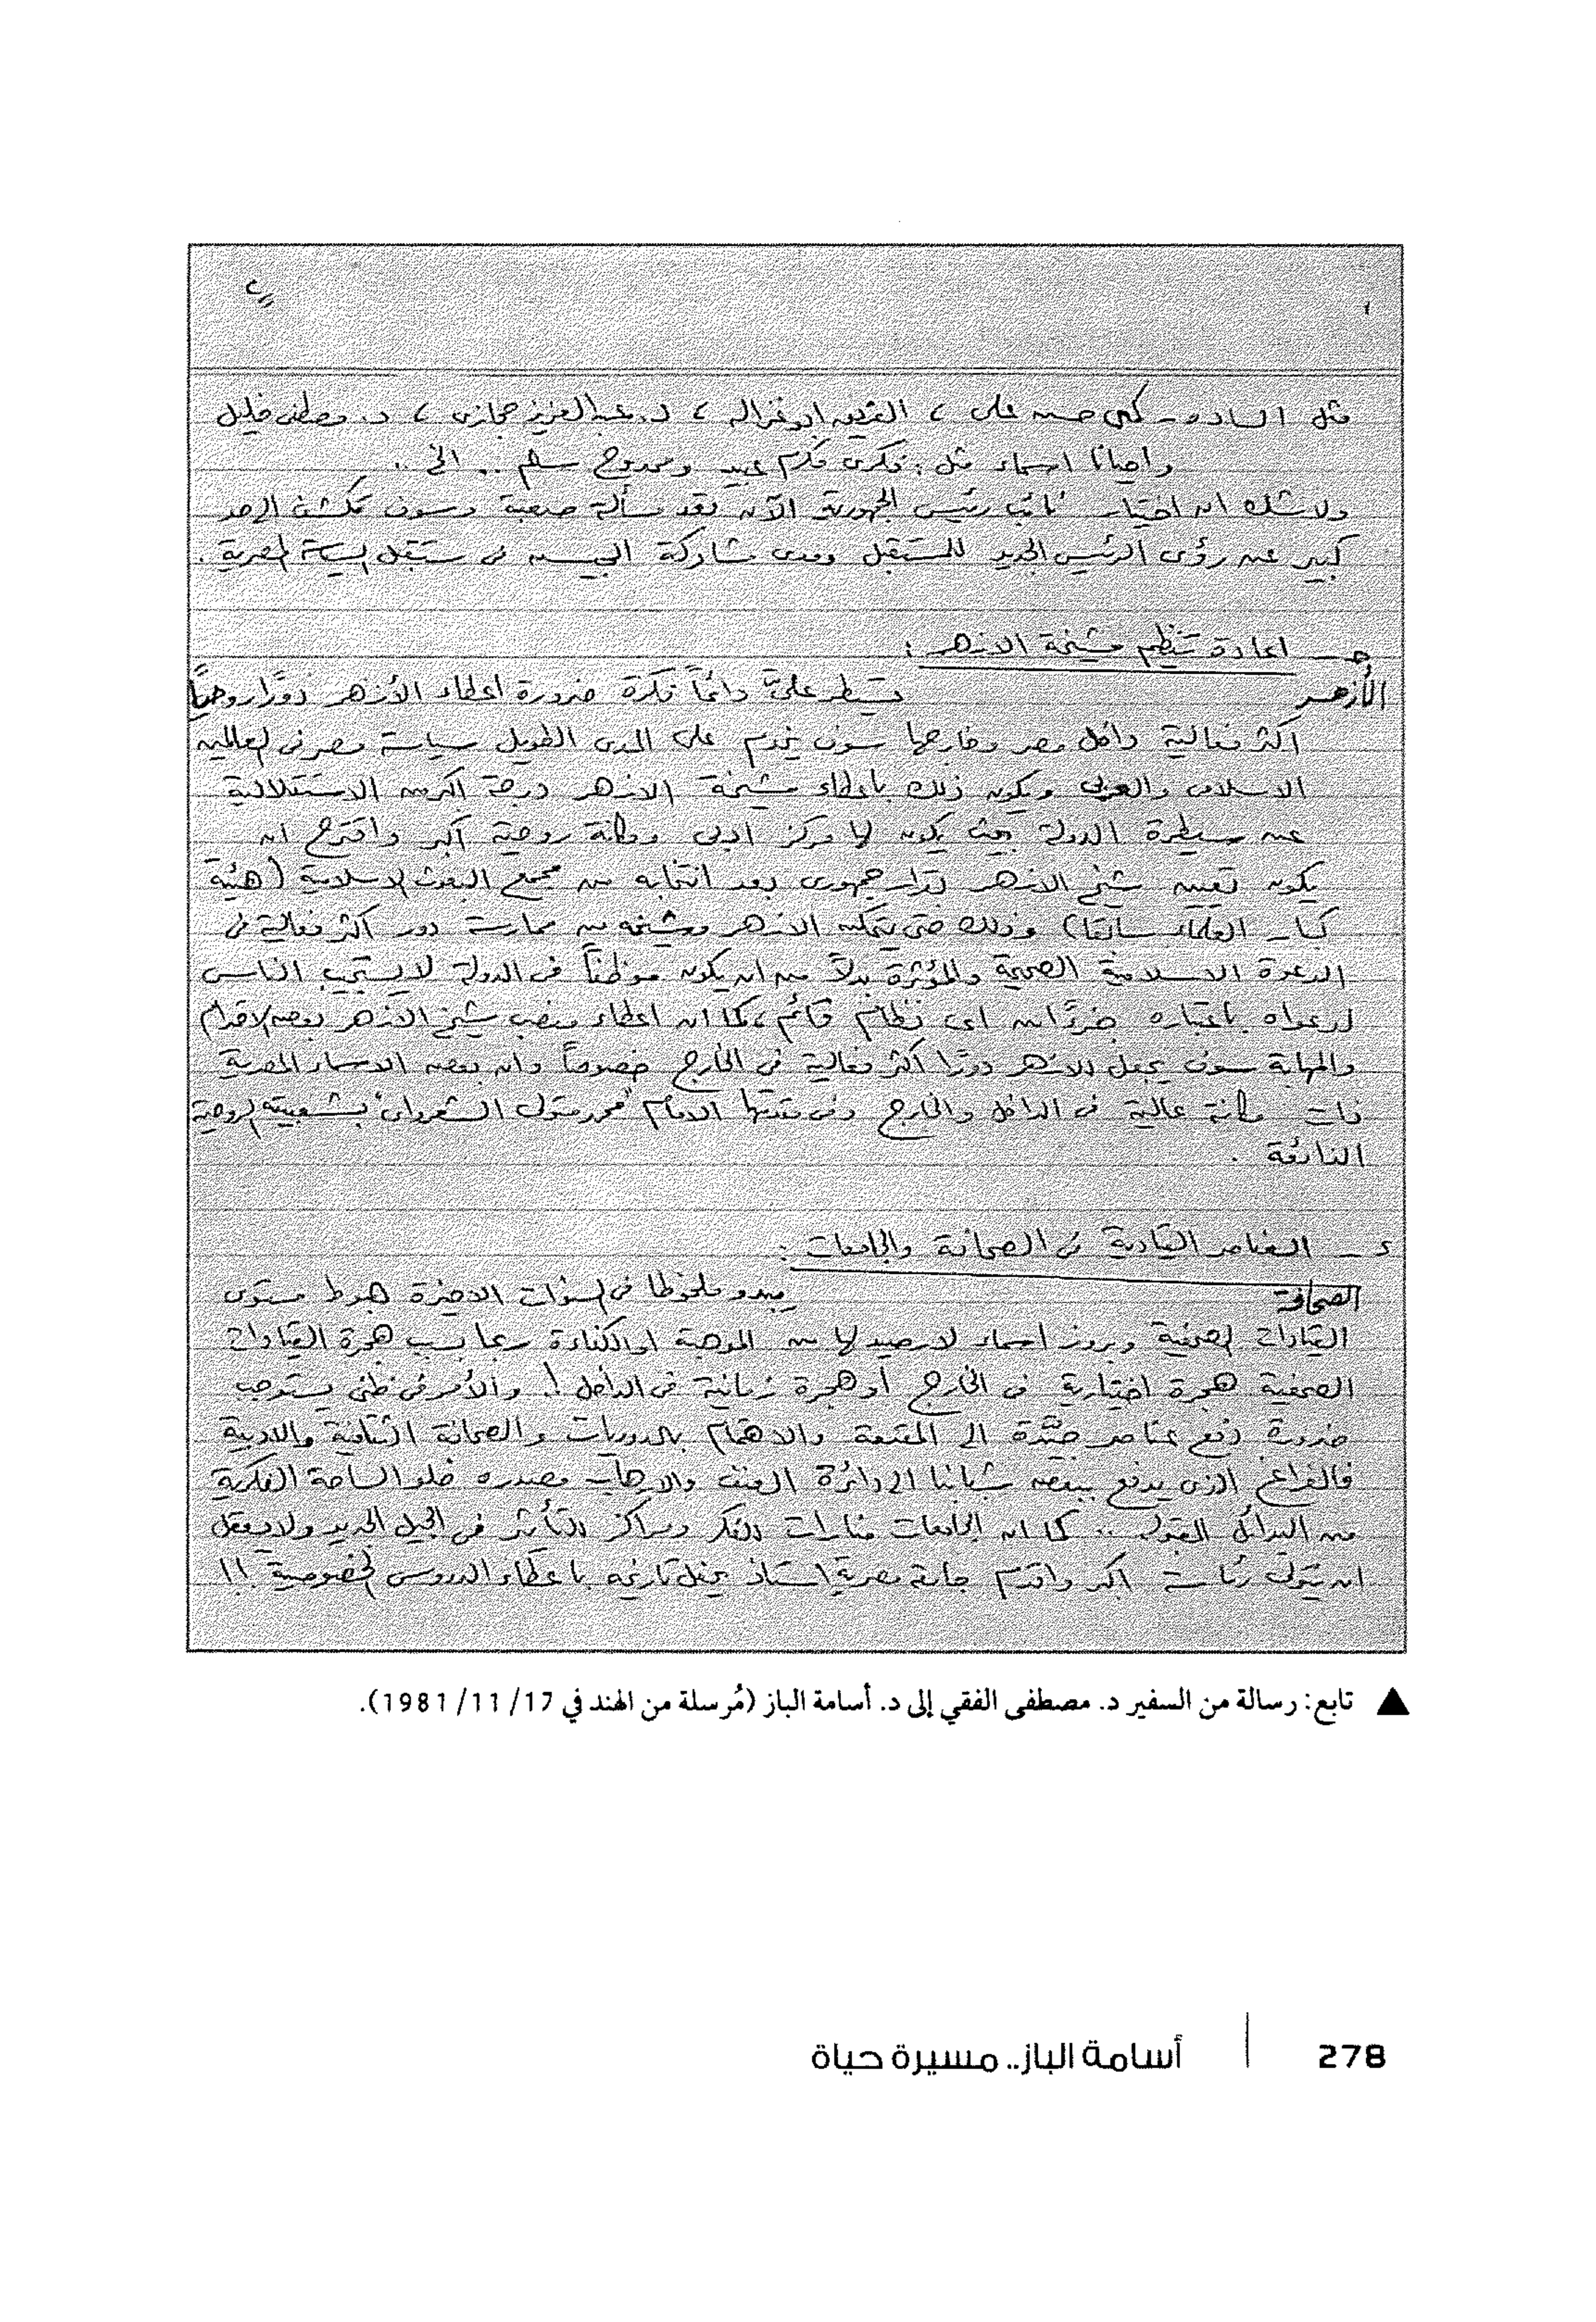 مثل السادة - كمال حسن على ، الفريق ابو غزاله ، د. عبد العزيز حجازى ، د. مصطفى خليل
واحيانا اسماء مثل : فكرى مكرم عبيد وممدوح سالم .. الخ ..
ولا شك ان اختيار نائب رئيس الجمهورية الآن تعد مسألة صعبة وسوف تكشف الى حد
كبير عن رؤى الرئيس الجديد للمستقبل ومدى مشاركة الجيش فى مستقبل السياسة المصرية .
جـ - اعادة تنظيم مشيخة الازهر :
الأزهر تسيطر علىّ دائماً فكرة ضرورة اعطاء الأزهر دورًا روحيًا
اكثر فعالية داخل مصر وخارجها سوف يخدم على المدى الطويل سياسة مصر فى العالمين
الاسلامى والعربى ويكون ذلك باعطاء مشيخة الازهر درجة اكبر من الاستقلالية
عن سيطرة الدولة بحيث يكون لها مركز ادبى ومكانة روحية اكبر واقترح ان
يكون تعيين شيخ الازهر بقرار جمهورى بعد انتخابه من مجمع البحوث الاسلامية (هيئة
كبار العلماء سابقا) وذلك حتى يتمكن الازهر ومشيخته من ممارسة دور اكثر فعالية فى
الدعوة الاسلامية الصحيحة والمؤثرة بدلاً من ان يكون موظفاً فى الدولة لا يستجيب الناس
لدعواه باعتباره جزءًا من اى نظام قائم ، كما ان اعطاء منصب شيخ الازهر بعض الاقدام
والمهابة سوف يجعل للازهر دورًا اكثر فعالية فى الخارج خصوصاً وان بعض الاسماء المصرية
ذات مكانة عالية فى الداخل والخارج وفى مقدمتها الامام "محمد متولى الشعراوى" بشعبيته الروحية
الفائقة .
د - العناصر القيادية فى الصحافة والجامعات :
الصحافة يبدو ملحوظا فى السنوات الاخيرة هبوط مستوى
القيادات الصحفية وبروز اسماء لا رصيد لها من الموهبة او الكفاءة ربما بسبب هجرة القيادات
الصحفية هجرة اختيارية فى الخارج أو هجرة زمانية فى الداخل ! والأمر فى ظنى يستوجب
ضرورة دفع عناصر جيّدة الى المقدمة والاهتمام بالدوريات والصحافة الثقافية والادبية
فالفراغ الذى يدفع ببعض شبابنا الى دائرة العنف والارهاب مصدره خلو الساحة الفكرية
من البدائل .. كما ان الجامعات منارات للفكر ومراكز للتأثير فى الجيل الجديد ولا يعقل
ان يتولى رئاسة اكبر واقدم جامعة مصرية استاذ يحفل تاريخه باعطاء الدروس الخصوصية !!
▲ تابع: رسالة من السفير د. مصطفى الفقي إلى د. أسامة الباز (مُرسلة من الهند في 17/ 11/ 1981).
278 | أسامة الباز.. مسيرة حياة